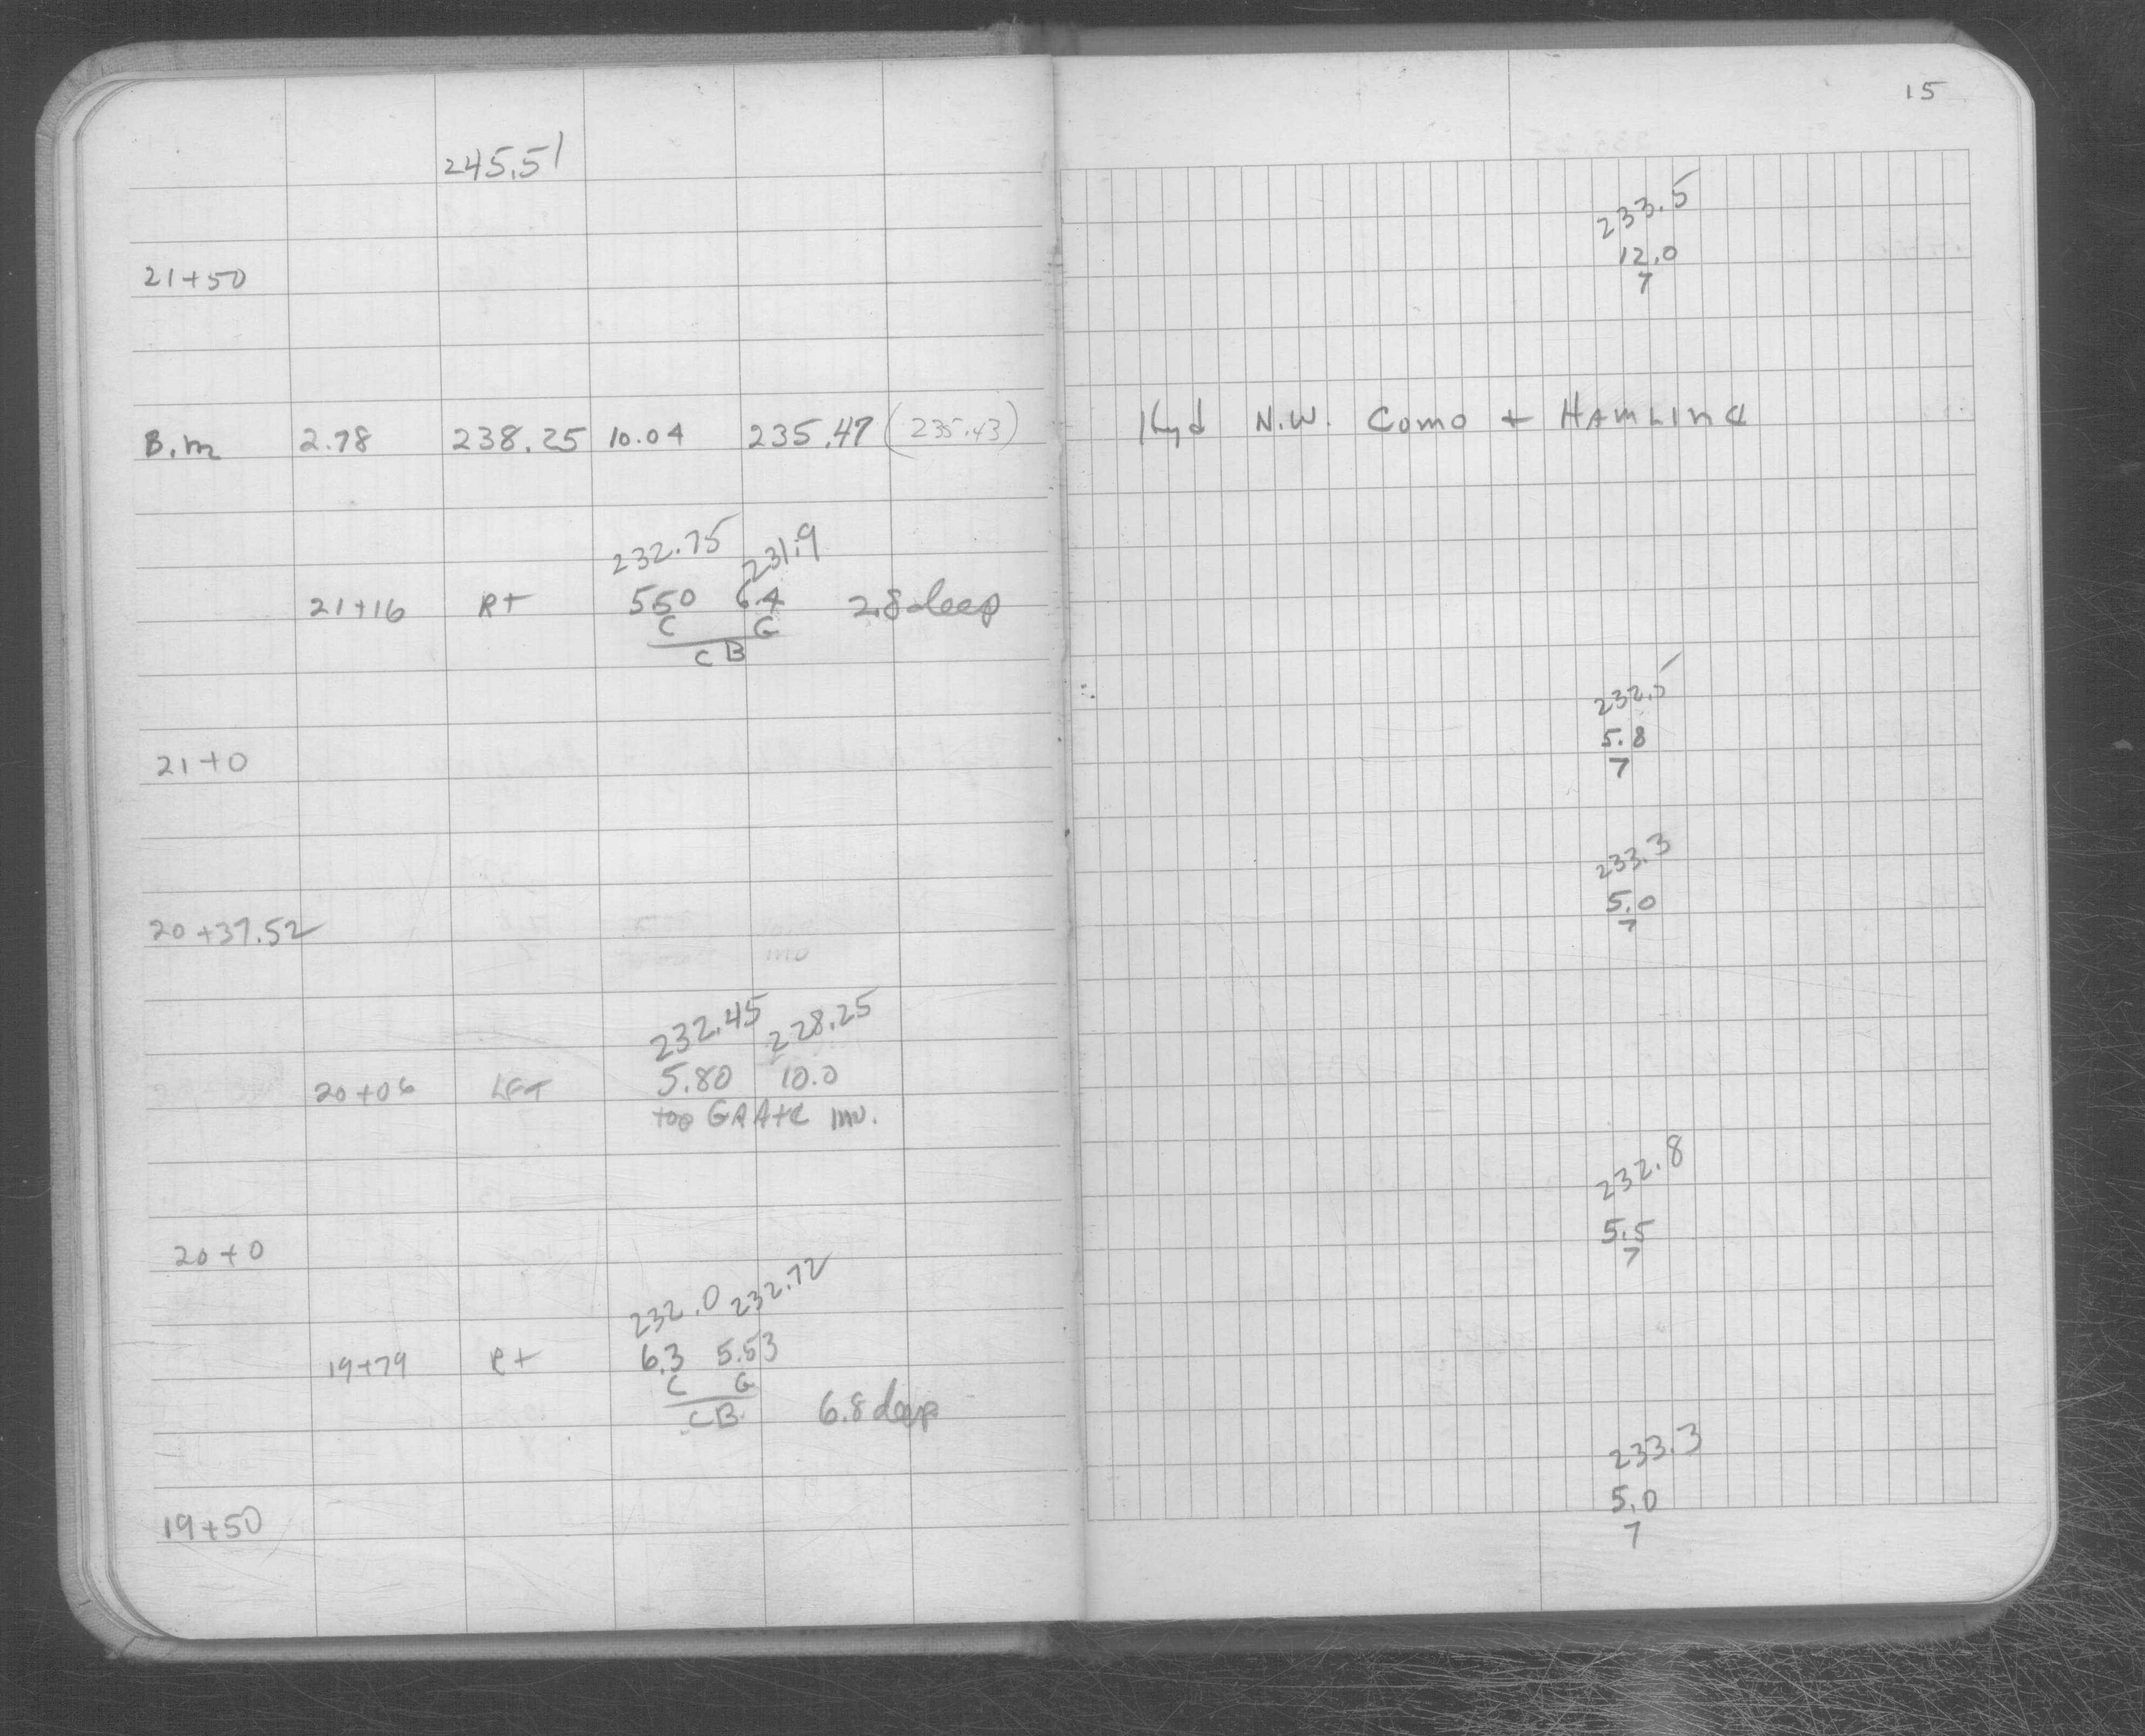 15
245.51
233.5
12.0
7
21+50
B.m 2.78 238.25 10.04 235.47 (235.43) Hyd N.W. Como + HAMLINE
232.75 231.9
21+16 Rt 5.50 6.4 2.8 deep
C G
CB
232.5
5.8
7
21+0
233.3
5.0
7
20+37.52
232.45 228.25
20+06 LFT 5.80 10.0
top GRAtE inv.
232.8
5.5
7
20+0
232.0 232.72
19+79 Rt 6.3 5.53
C G
CB 6.8 deep
233.3
5.0
7
19+50